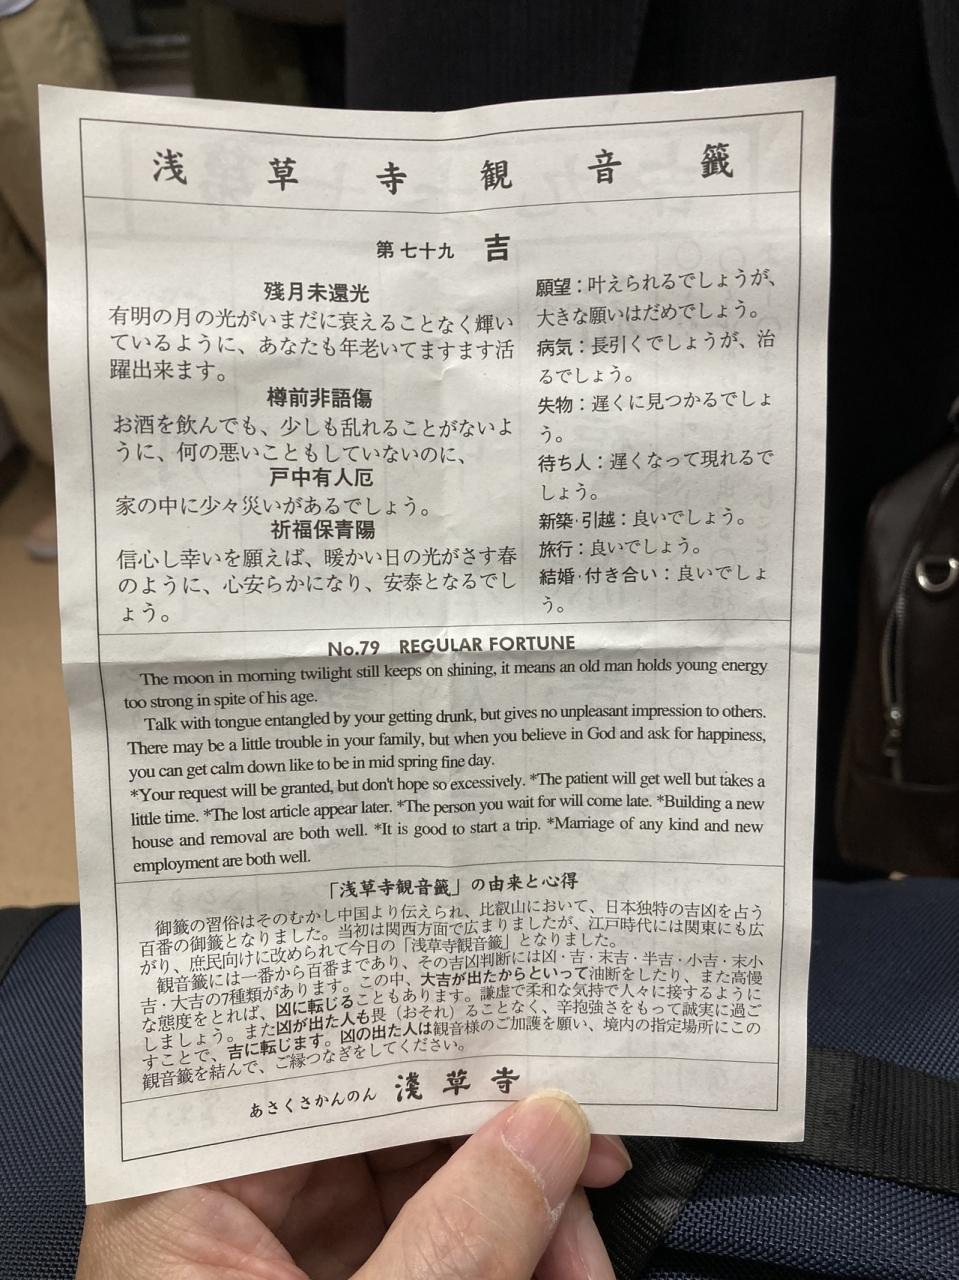 浅草寺観音籤
第七十九 吉
殘月未還光
有明の月の光がいまだに衰えることなく輝い
ているように、あなたも年老いてますます活
躍出来ます。
樽前非語傷
お酒を飲んでも、少しも乱れることがないよ
うに、何の悪いこともしていないのに、
戸中有人厄
家の中に少々災いがあるでしょう。
祈福保青陽
信心し幸いを願えば、暖かい日の光がさす春
のように、心安らかになり、安泰となるでし
ょう。
願望：叶えられるでしょうが、
大きな願いはだめでしょう。
病気：長引くでしょうが、治
るでしょう。
失物：遅くに見つかるでしょ
う。
待ち人：遅くなって現れるで
しょう。
新築·引越：良いでしょう。
旅行：良いでしょう。
結婚·付き合い：良いでしょ
う。
No.79 REGULAR FORTUNE
The moon in morning twilight still keeps on shining, it means an old man holds young energy
too strong in spite of his age.
Talk with tongue entangled by your getting drunk, but gives no unpleasant impression to others.
There may be a little trouble in your family, but when you believe in God and ask for happiness,
you can get calm down like to be in mid spring fine day.
*Your request will be granted, but don't hope so excessively. *The patient will get well but takes a
little time. *The lost article appear later. *The person you wait for will come late. *Building a new
house and removal are both well. *It is good to start a trip. *Marriage of any kind and new
employment are both well.
「浅草寺観音籤」の由来と心得
御籤の習俗はそのむかし中国より伝えられ、比叡山において、日本独特の吉凶を占う
百番の御籤となりました。当初は関西方面で広まりましたが、江戸時代には関東にも広
がり、庶民向けに改められて今日の「浅草寺観音籤」となりました。
観音籤には一番から百番まであり、その吉凶判断には凶・吉・末吉・半吉・小吉・末小
吉・大吉の7種類があります。この中、大吉が出たからといって油断をしたり、また高慢
な態度をとれば、凶に転じることもあります。謙虚で柔和な気持で人々に接するように
しましょう。また凶が出た人も畏（おそれ）ることなく、辛抱強さをもって誠実に過ご
すことで、吉に転じます。凶の出た人は観音様のご加護を願い、境内の指定場所にこの
観音籤を結んで、ご縁つなぎをしてください。
あさくさかんのん 淺草寺